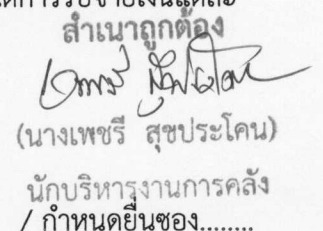 สำเนาถูกต้อง
(นางเพชรี สุขประโคน)
นักบริหารงานการคลัง
/ กำหนดยื่นซอง........